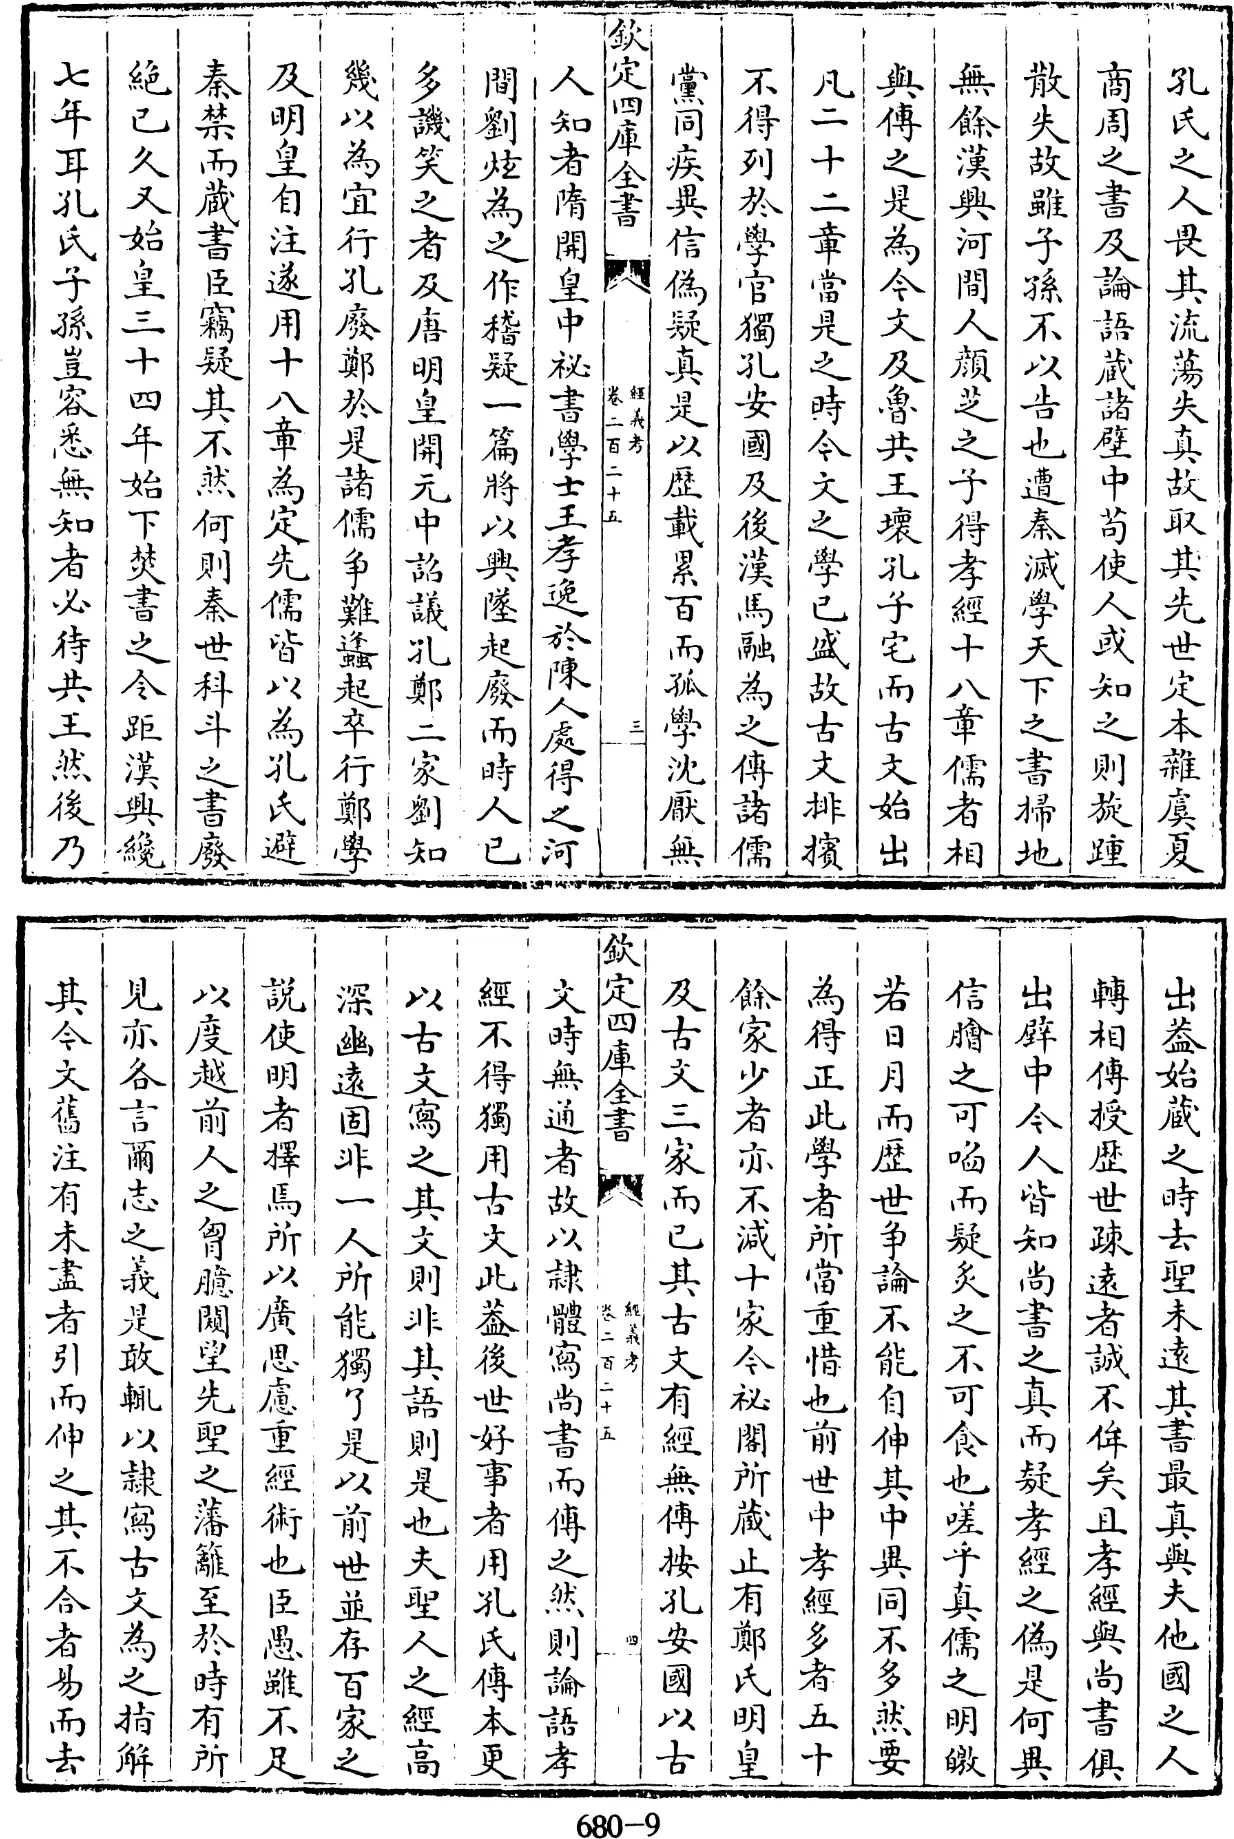 孔氏之人畏其流蕩失真故取其先世定本雜虞夏
商周之書及論語藏諸壁中苟使人或知之則旋踵
散失故雖子孫不以告也遭秦滅學天下之書掃地
無餘漢興河間人顏芝之子得孝經十八章儒者相
與傳之是為今文及魯共王壞孔子宅而古文始出
凡二十二章當是之時今文之學已盛故古文排擯
不得列於學官獨孔安國及後漢馬融為之傳諸儒
黨同疾異信偽疑真是以歴載累百而孤學沈厭無
欽定四庫全書
經義考
卷二百二十五
三
人知者隋開皇中祕書學士王孝逸於陳人處得之河
間劉炫為之作稽疑一篇將以興墜起廢而時人已
多譏笑之者及唐明皇開元中詔議孔鄭二家劉知
幾以為宜行孔廢鄭於是諸儒爭難蠭起卒行鄭學
及明皇自注遂用十八章為定先儒皆以為孔氏避
秦禁而藏書臣竊疑其不然何則秦世科斗之書廢
絕已久又始皇三十四年始下焚書之令距漢興纔
七年耳孔氏子孫豈容悉無知者必待共王然後乃
出葢始藏之時去聖未遠其書最真與夫他國之人
轉相傳授歴世疎遠者誠不侔矣且孝經與尚書俱
出壁中今人皆知尚書之真而疑孝經之偽是何異
信膾之可啗而疑炙之不可食也嗟乎真儒之明皦
若日月而歴世爭論不能自伸其中異同不多然要
為得正此學者所當重惜也前世中孝經多者五十
餘家少者亦不減十家今祕閣所藏止有鄭氏明皇
及古文三家而已其古文有經無傳按孔安國以古
欽定四庫全書
經義考
卷二百二十五
四
文時無通者故以隷體寫尚書而傳之然則論語孝
經不得獨用古文此葢後世好事者用孔氏傳本更
以古文寫之其文則非其語則是也夫聖人之經高
深幽遠固非一人所能獨了是以前世並存百家之
說使明者擇焉所以廣思慮重經術也臣愚雖不足
以度越前人之胷臆闚望先聖之藩籬至於時有所
見亦各言爾志之義是敢輒以隷寫古文為之指解
其今文舊注有未盡者引而伸之其不合者易而去
680-9